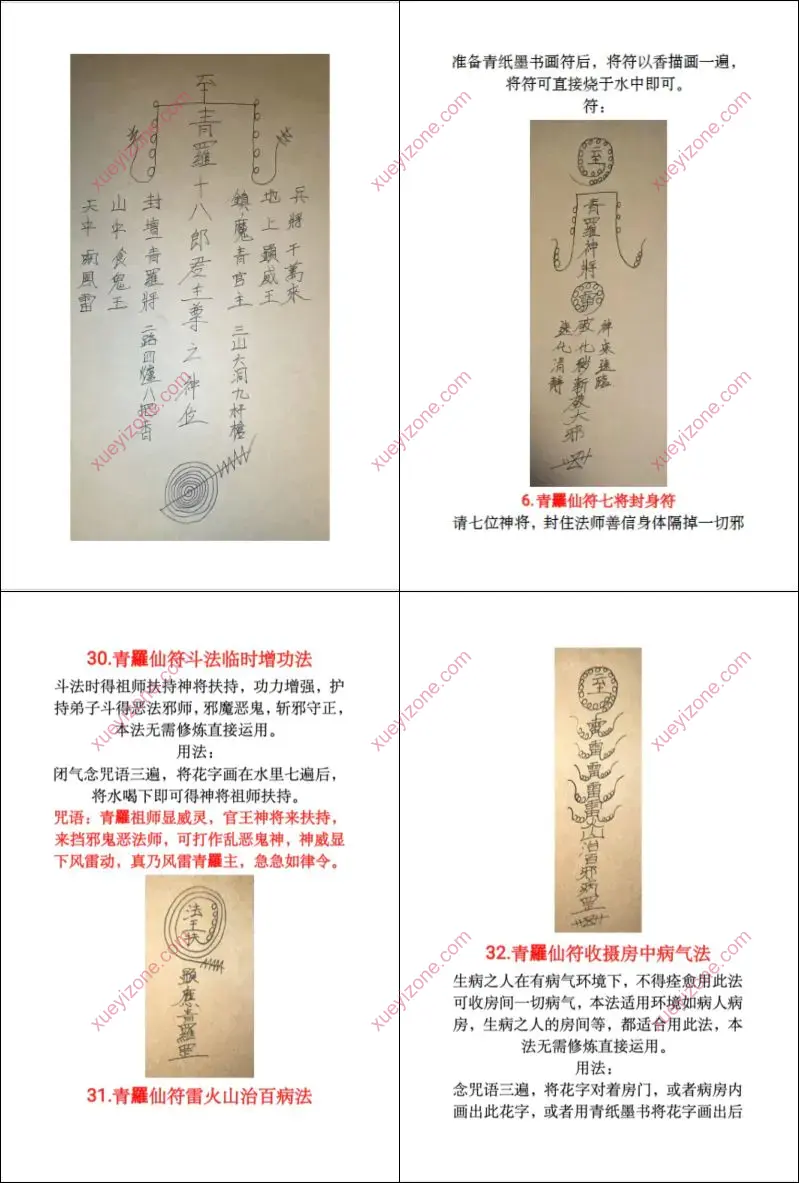 至
青羅十八郎君主尊之神位
兵將千萬來
地上顯威王
鎮魔青官主 三山大洞九杯樓
封壇青羅將 二路四爐八把香
山中食鬼王
天中雨風雷
xueyizone.com
xueyizone.com
准备青纸墨书画符后，将符以香描画一遍，
将符可直接烧于水中即可。
符：
至
青羅神將
神來速臨
破化穢斬發大邪
速化清静
6.青羅仙符七将封身符
请七位神将，封住法师善信身体隔掉一切邪
xueyizone.com
xueyizone.com
30.青羅仙符斗法临时增功法
斗法时得祖师扶持神将扶持，功力增强，护
持弟子斗得恶法邪师，邪魔恶鬼，斩邪守正，
本法无需修炼直接运用。
用法：
闭气念咒语三遍，将花字画在水里七遍后，
将水喝下即可得神将祖师扶持。
咒语：青羅祖师显威灵，官王神将来扶持，
来挡邪鬼恶法师，可打作乱恶鬼神，神威显
下风雷动，真乃风雷青羅主，急急如律令。
法王扶
顯應青羅罡
31.青羅仙符雷火山治百病法
xueyizone.com
xueyizone.com
至
雷
雷
雷
雷
雷
山治百邪病罡
32.青羅仙符收摄房中病气法
生病之人在有病气环境下，不得痊愈用此法
可收房间一切病气，本法适用环境如病人病
房，生病之人的房间等，都适合用此法，本
法无需修炼直接运用。
用法：
念咒语三遍，将花字对着房门，或者病房内
画出此花字，或者用青纸墨书将花字画出后
xueyizone.com
xueyizone.com